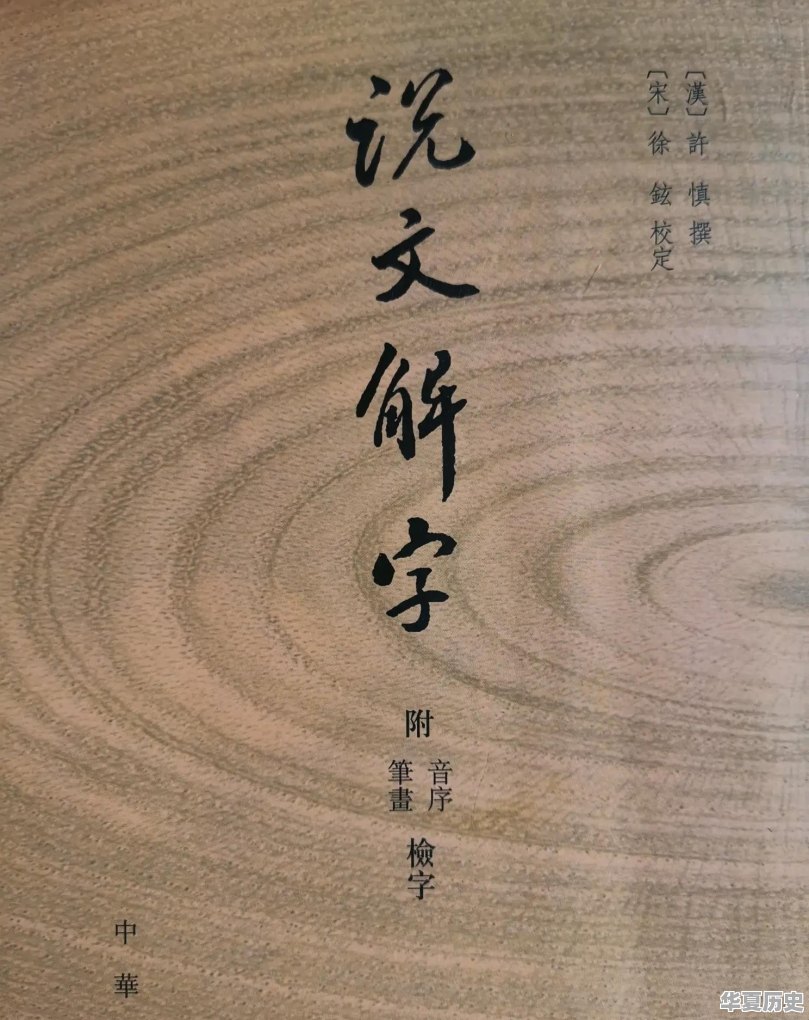 [漢] 許慎撰
[宋] 徐鉉校定
説文解字
附
音序
筆畫
檢字
中華
华夏历史